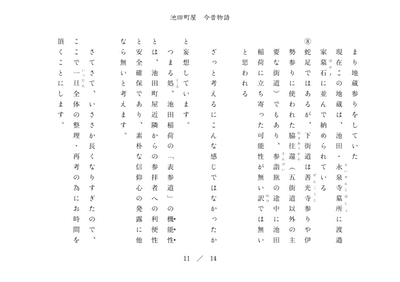 池田町屋 今昔物語
まり地蔵参りをしていた
現在この地蔵は、池田・永泉寺墓所に渡邉
家墓石に並んで納められている
⑧蛇足ではあるが、下街道は善光寺参りや伊
勢参りに使われた脇往還（五街道以外の主
要な街道）でもあり、参詣旅の途中に池田
稲荷に立ち寄った可能性が無い訳では無い
と思われる
ざっと考えるにこんな感じではなかったか
と妄想しています。
つまる処、池田稲荷の「表参道」の機能性
とは、池田町屋近隣からの参拝者への利便性
と安全確保であり、素朴な信仰心の発露に他
なら無いと考えます。
さてさて、いささか長くなりすぎたので、
ここで一旦全体の整理・再考の為にお時間を
頂くことにします。
11 ／ 14